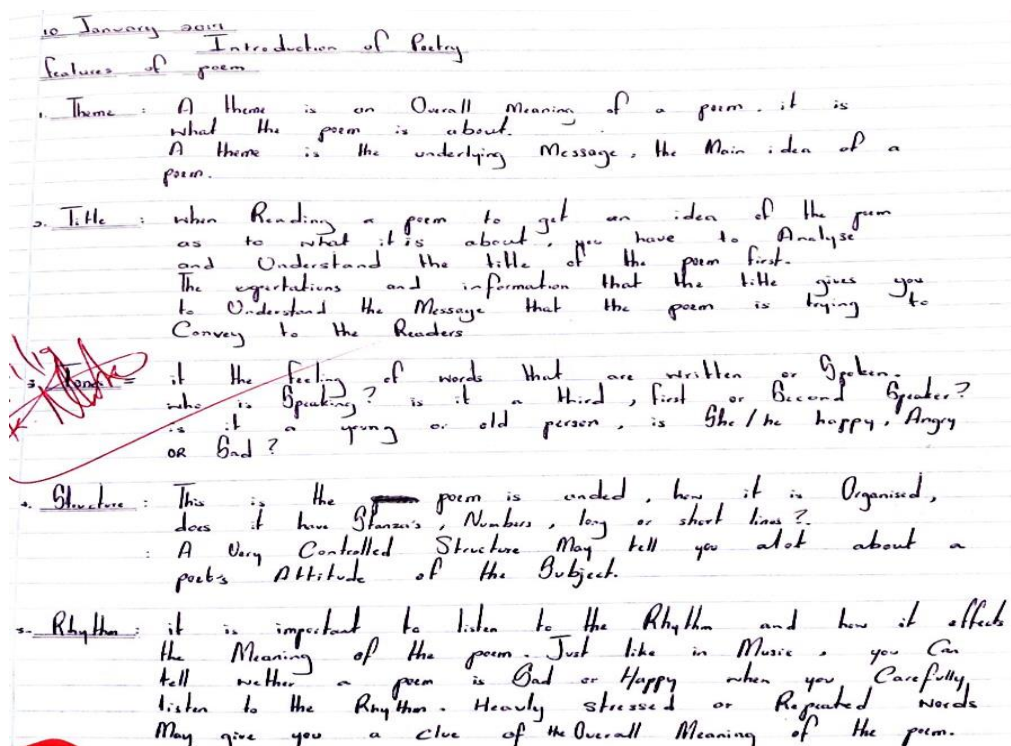 10 January 2019
Introduction of Poetry
features of poem
1. Theme : A theme is an Overall Meaning of a poem. it is
what the poem is about.
A theme is the underlying Message, the Main idea of a
poem.
2. Title : when Reading a poem to get an idea of the poem
as to what it is about, you have to Analyse
and Understand the title of the poem first.
The expectations and information that the title gives you
to Understand the Message that the poem is trying to
Convey to the Readers
3. Tone = it the feeling of words that are written or Spoken.
who is Speaking? is it a third, first or Second Speaker?
is it a young or old person, is She/he happy, Angry
OR Sad?
4. Structure : This is the poem is ended, how it is Organised,
does it have Stanza's, Numbers, long or short lines?
: A Very Controlled Structure May tell you alot about a
poet's Attitude of the Subject.
5. Rhythm : it is important to listen to the Rhythm and how it effects
the Meaning of the poem. Just like in Music, you Can
tell wether a poem is Sad or Happy when you Carefully
listen to the Rhythm. Heavly stressed or Repeated words
May give you a clue of the Overall Meaning of the poem.